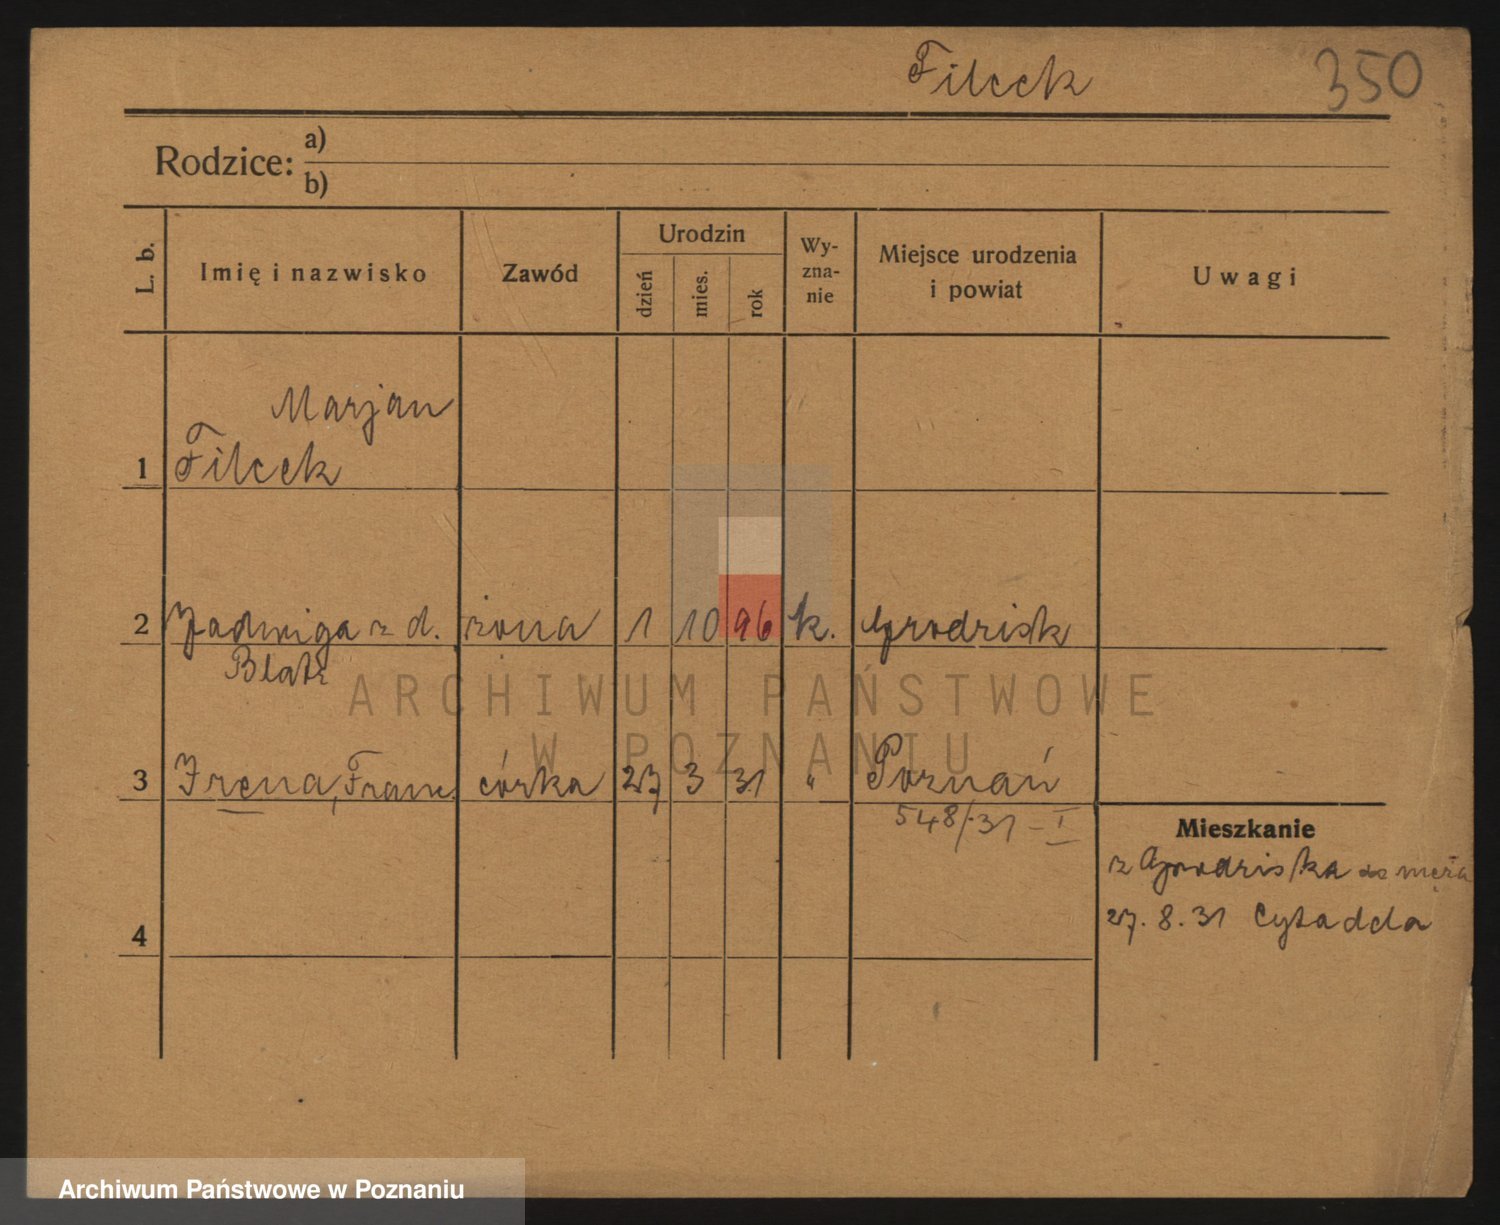 Filcek 350
Rodzice: a)
b)
L. b. Imię i nazwisko Zawód Urodzin dzień mies. rok Wy-zna-nie Miejsce urodzenia i powiat Uwagi
Marjan
1 Filcek
2 Jadwiga z d. żona 1 10 96 k. Grodzisk
Blatz
ARCHIWUM PAŃSTWOWE
W POZNANIU
3 Irena, Franc. córka 27 3 31 " Poznań
548/31 - I
Mieszkanie
z Grodziska do męża
27. 8. 31 Cytadela
4
Archiwum Państwowe w Poznaniu